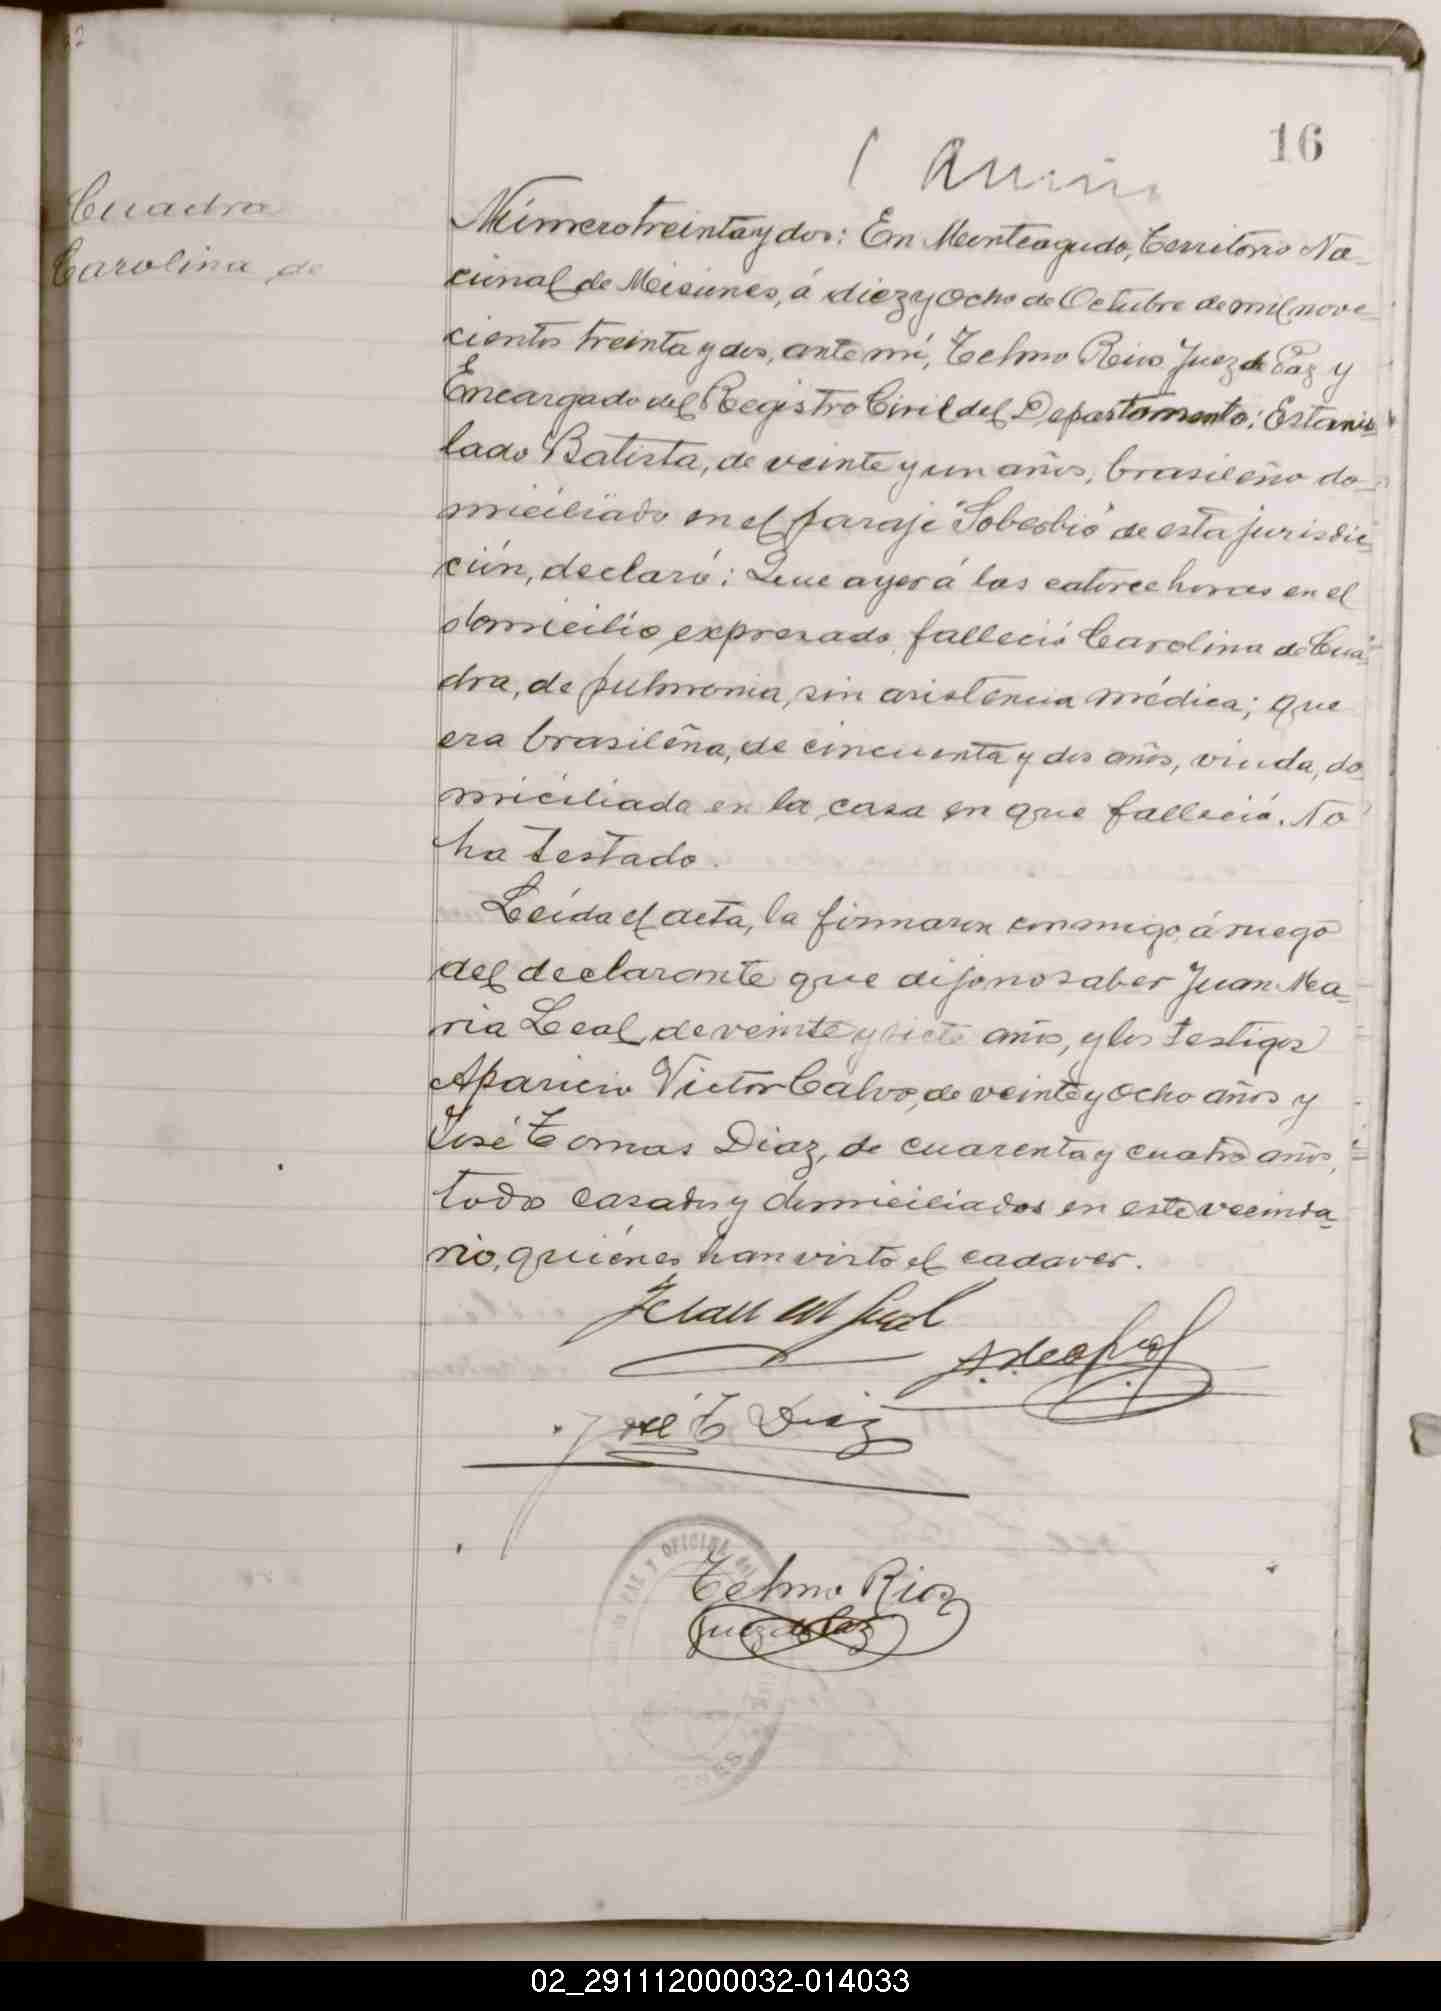 16
Cuadra
Carolina de
Número treinta y dos: En Monteagudo, Territorio Na-
cional de Misiones, á diez y ocho de Octubre de mil nove-
cientos treinta y dos, ante mí, Telmo Rios Juez de Paz y
Encargado del Registro Civil del Departamento: Estanis-
lado Batista, de veinte y un años, brasileño do-
miciliado en el paraje "Soberbio" de esta jurisdic-
ción, declaró: Que ayer á las catorce horas en el
domicilio expresado, falleció Carolina de Cua-
dra, de pulmonia, sin asistencia médica; que
era brasileña, de cincuenta y dos años, viuda, do-
miciliada en la casa en que falleció. No
ha testado.
Leída el acta, la firmaron conmigo, á ruego
del declarante que dijo no saber Juan Ma-
ria Leal, de veinte y siete años, y los testigos
Aparicio Victor Calvo, de veinte y ocho años y
José Tomas Diaz, de cuarenta y cuatro años,
todos casados y domiciliados en este vecinda-
rio, quiénes han visto el cadaver.
Juan M Leal
José T Diaz
Telmo Rios
Juez de Paz
PAZ Y OFICINA
02_291112000032-014033